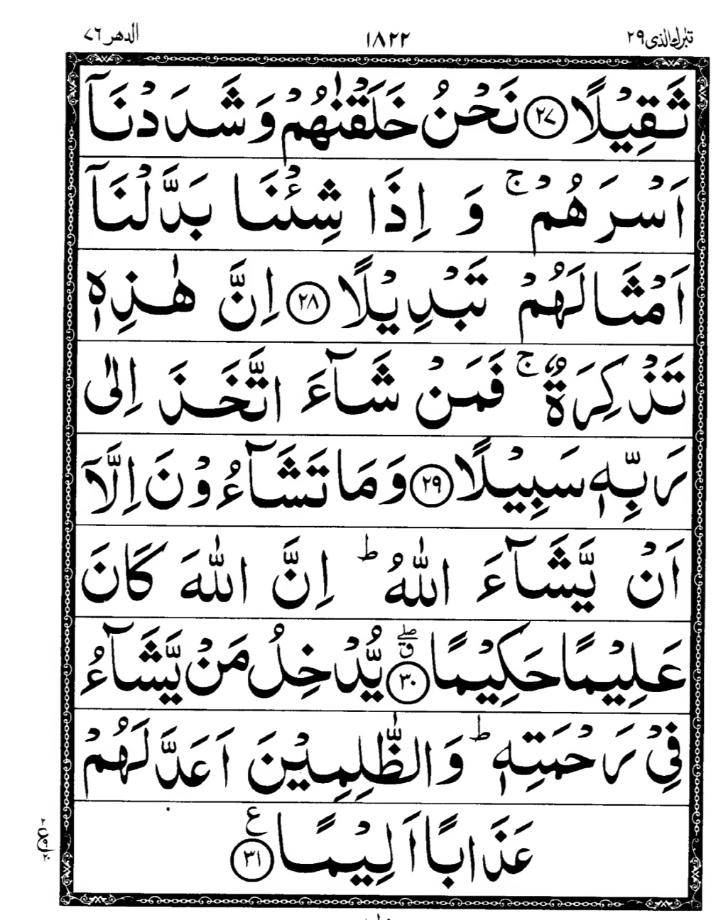 تبٰرك الذی ۲۹ ۱۸۲۲ الدهر ۷۶
ثَقِيْلًا ﴿۲۷﴾ نَحْنُ خَلَقْنٰهُمْ وَشَدَدْنَاۤ
اَسْرَهُمْ ۚ وَ اِذَا شِئْنَا بَدَّلْنَاۤ
اَمْثَالَهُمْ تَبْدِيْلًا ﴿۲۸﴾ اِنَّ هٰذِهٖ
تَذْكِرَةٌ ۚ فَمَنْ شَآءَ اتَّخَذَ اِلٰى
رَبِّهٖ سَبِيْلًا ﴿۲۹﴾ وَمَا تَشَآءُوْنَ اِلَّاۤ
اَنْ يَّشَآءَ اللّٰهُ ؕ اِنَّ اللّٰهَ كَانَ
عَلِيْمًا حَكِيْمًا ﴿۳۰﴾ ۗۖ يُّدْخِلُ مَنْ يَّشَآءُ
فِيْ رَحْمَتِهٖ ؕ وَالظّٰلِمِيْنَ اَعَدَّ لَهُمْ
عَذَابًا اَلِيْمًا ﴿۳۱﴾ ع